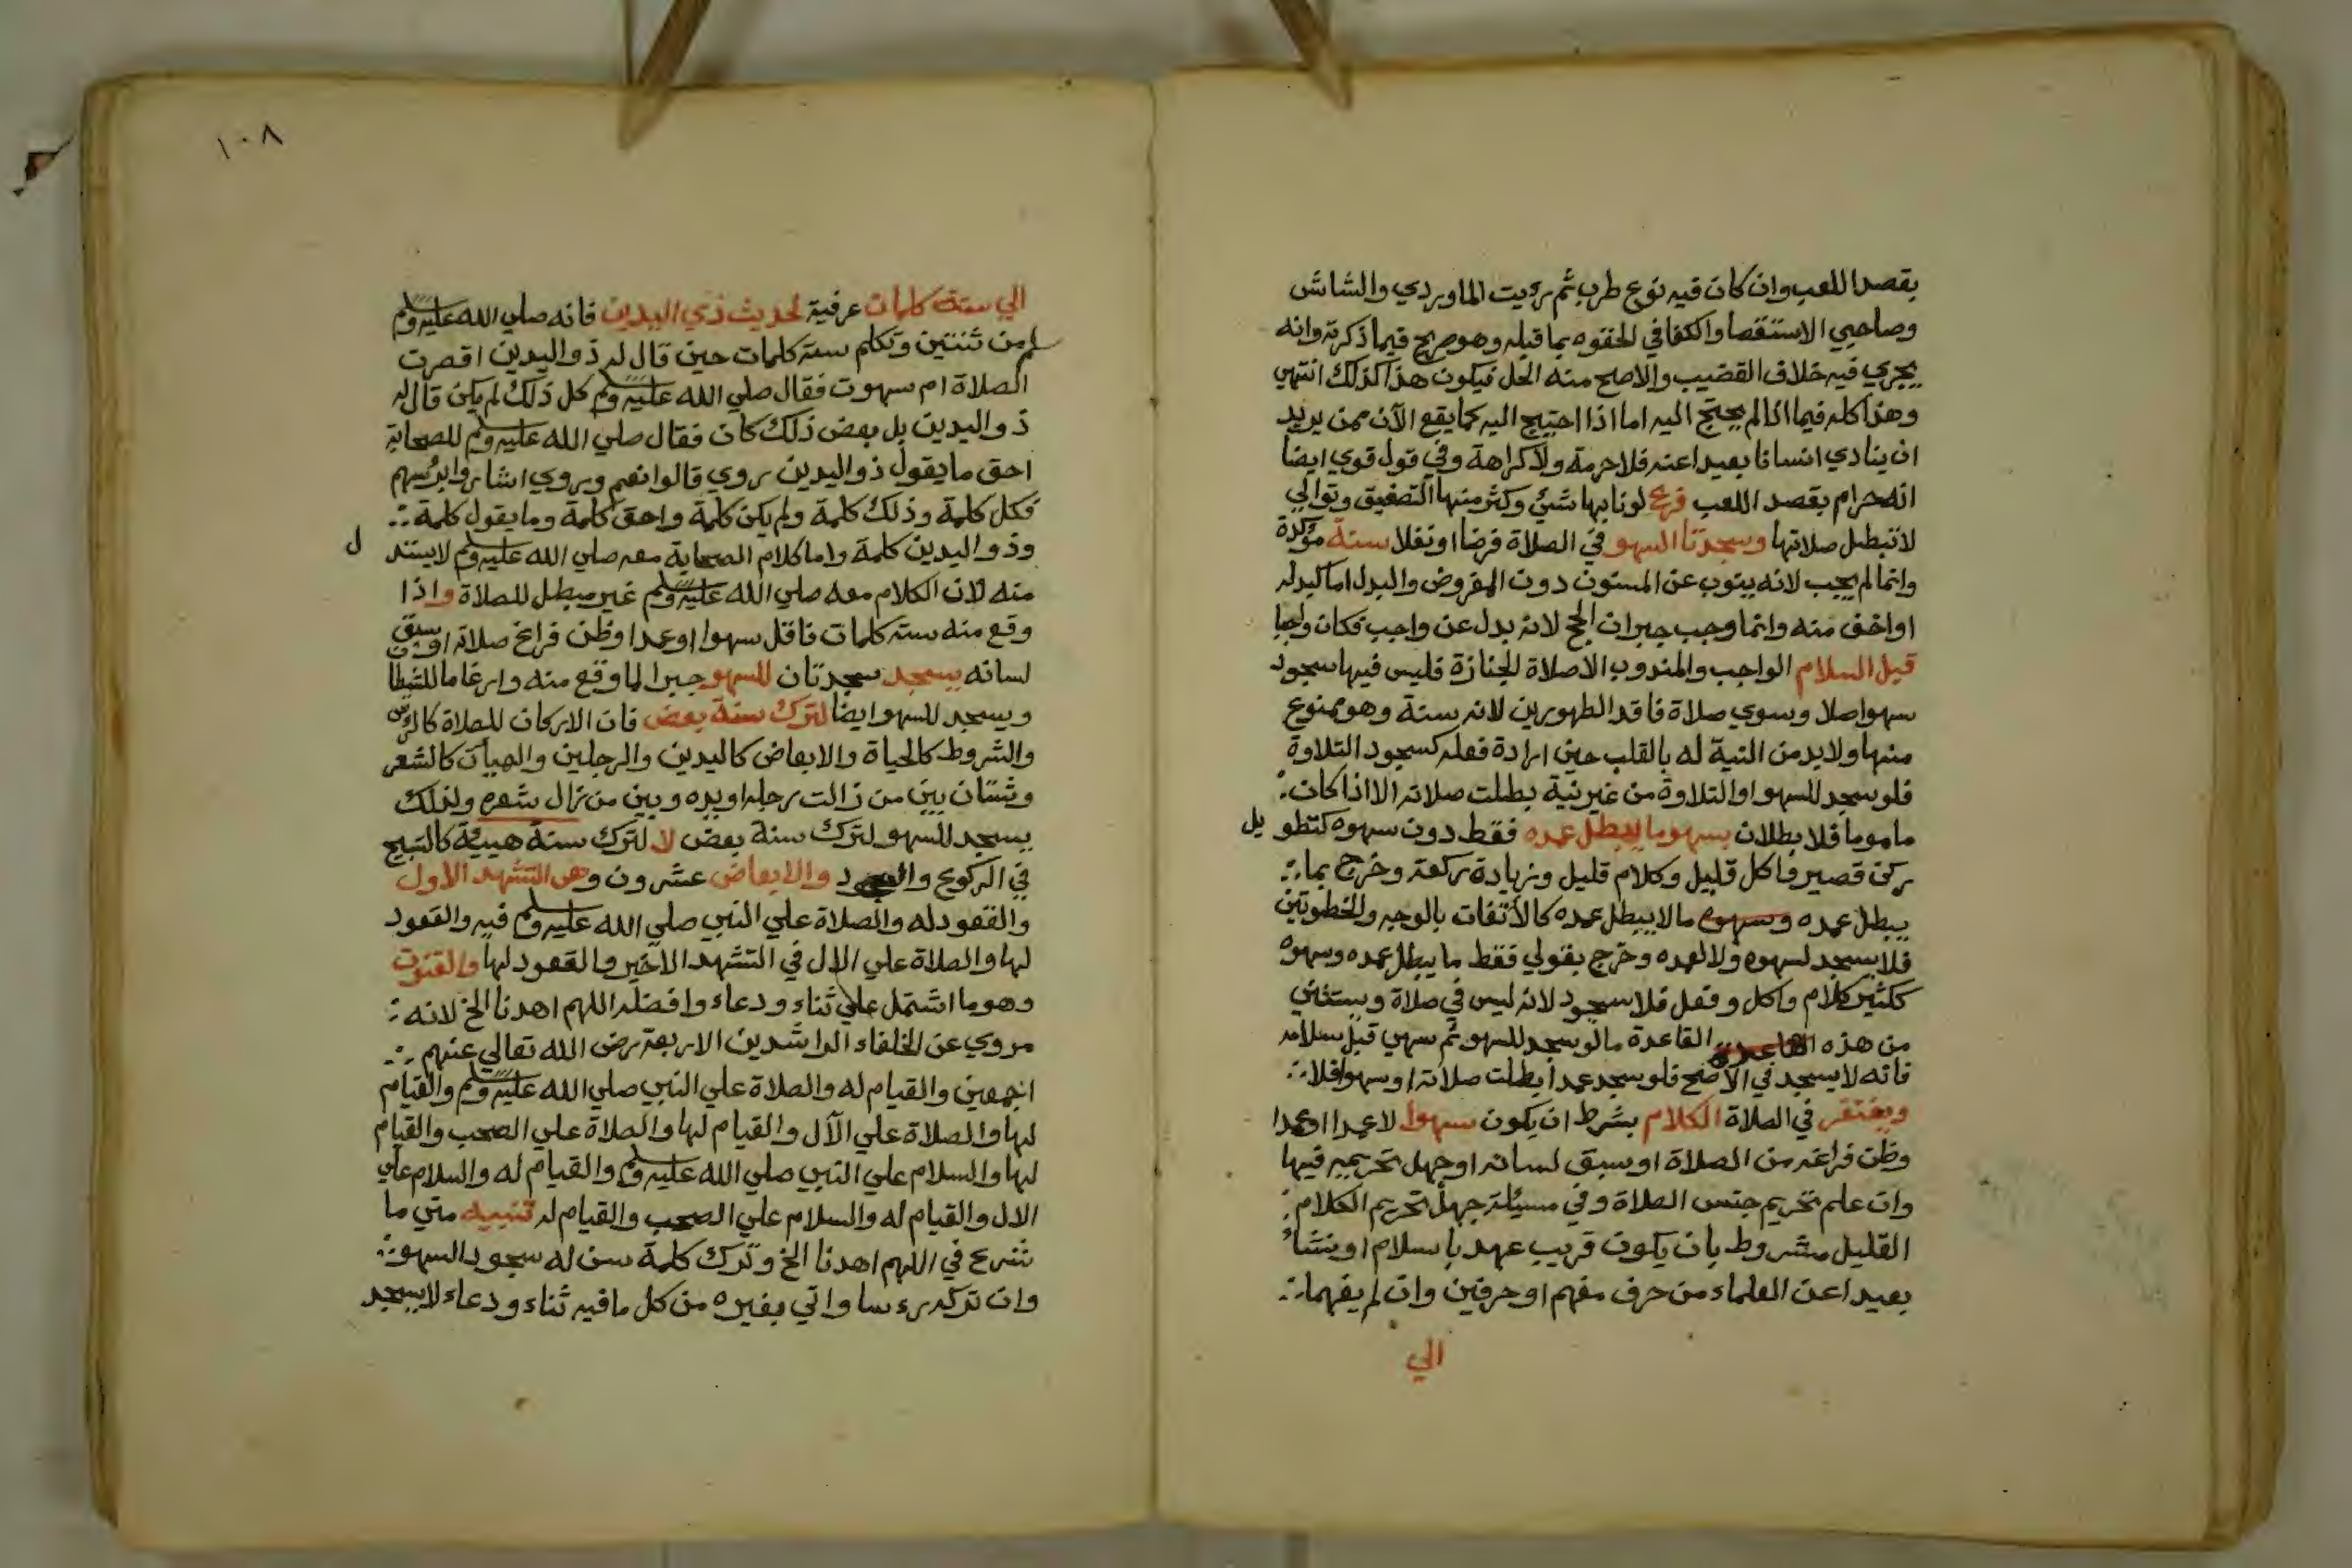 بقصد اللعب وان كان فيه نوع طرب ثم رءيت الماوردي والشاشي
وصاحبي الاستقصا والكفافي الحقوه بما قبله وهو صريح فيما ذكرته وانه
يجري فيه خلاف القضيب والاصح منه الحل فيكون هذا كذلك انتهي
وهذا كله فيما اذا لم يحتج اليه اما اذا احتيج اليه كما يقع الآن ممن يريد
ان ينادي انسانا بعيدا عنه فلا حرمة ولا كراهة وفي قول قوي ايضا
انه حرام بقصد اللعب فرع لو نابها شيئ وكثر منها التصفيق وتوالي
لا تبطل صلاتها وسجدتا السهو في الصلاة فرضا او نفلا سنة مؤكدة
وانما لم يجب لانه ينوب عن المسنون دون المفروض والبدل اما كمبدله
او اخف منه وانما وجب جبران الحج لانه بدل عن واجب فكان واجبا
قبل السلام الواجب والمندوب الا صلاة الجنازة فليس فيها سجود
سهو اصلا وسوي صلاة فاقد الطهورين لانه سنة وهو ممنوع
منها ولا بد من النية له بالقلب حين ارادة فعله كسجود التلاوة
فلو سجد للسهو او التلاوة من غير نية بطلت صلاته الا اذا كان
ماموما فلا بطلان بسهو ما يبطل عمده فقط دون سهوه كتطويل
ركن قصير واكل قليل وكلام قليل وزيادة ركعة وخرج بما
يبطل عمده وسهوه ما لا يبطل عمده كالالتفات بالوجه والخطوتين
فلا يسجد لسهوه ولا لعمده وخرج بقولي فقط ما يبطل عمده وسهوه
ككثير كلام واكل وفعل فلا سجود لانه ليس في صلاة ويستثني
من هذه القاعدة القاعدة ما لو سجد للسهو ثم سهي قبل سلامه
فانه لا يسجد في الاصح فلو سجد عمدا بطلت صلاته او سهوا فلا
ويغتفر في الصلاة الكلام بشرط ان يكون سهوا لا عمدا او عمدا
وظن فراغه من الصلاة او سبق لسانه او جهل تحريمه فيها
وان علم تحريم جنس الصلاة وفي مسيئلة جهل تحريم الكلام
القليل مشروط بان يكون قريب عهد باسلام او نشأ
بعيدا عن العلماء من حرف مفهم او حرفين وان لم يفهما
الي
١٠٨
الي ستة كلمات عرفية لحديث ذي اليدين فانه صلي الله عليه وسلم
سلم من ثنتين وتكلم ستة كلمات حين قال له ذو اليدين اقصرت
الصلاة ام سهوت فقال صلي الله عليه وسلم كل ذلك لم يكن قال له
ذو اليدين بل بعض ذلك كان فقال صلي الله عليه وسلم للصحابة
احق ما يقول ذو اليدين روي قالوا نعم ويروي اشاروا برؤسهم
فكل كلمة وذلك كلمة ولم يكن كلمة واحق كلمة وما يقول كلمة
وذو اليدين كلمة واما كلام الصحابة معه صلي الله عليه وسلم لا يستدل
منه لان الكلام معه صلي الله عليه وسلم غير مبطل للصلاة واذا
وقع منه ستة كلمات فاقل سهوا او عمدا وظن فراغ صلاته او سبق
لسانه يسجد سجدتان للسهو جبرا لما وقع منه وارغاما للشيطا
ويسجد للسهو ايضا لترك سنة بعض فان الاركان للصلاة كالراس
والشروط كالحياة والابعاض كاليدين والرجلين والهيآت كالشعر
وشتان بين من زالت رجله او يده وبين من زال شعره ولذلك
يسجد للسهو لترك سنة بعض لا لترك سنة هيئية كالتسبيح
في الركوع والسجود والابعاض عشرون وهي التشهد الاول
والقعود له والصلاة علي النبي صلي الله عليه وسلم فيه والقعود
لها والصلاة علي الال في التشهد الاخير والقعود لها والقنوت
وهو ما اشتمل علي ثناء ودعاء وافضله اللهم اهدنا الخ لانه
مروي عن الخلفاء الراشدين الاربعة رضي الله تعالي عنهم
اجمعين والقيام له والصلاة علي النبي صلي الله عليه وسلم والقيام
لها والصلاة علي الآل والقيام لها والصلاة علي الصحب والقيام
لها والسلام علي النبي صلي الله عليه وسلم والقيام له والسلام علي
الال والقيام له والسلام علي الصحب والقيام له تنبيه متي ما
شرع في اللهم اهدنا الخ وترك كلمة سن له سجود السهو
وان تركه رءسا واتي بغيره من كل ما فيه ثناء ودعاء لا يسجد